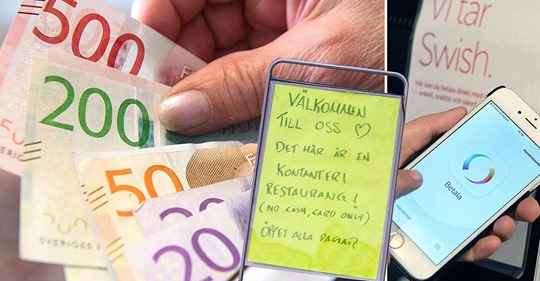 500
200
50
20
20
SVERIGES
VÄLKOMMEN
TILL OSS ♡
DET HÄR ÄR EN
KONTANTFRI
RESTAURANG!
(NO CASH, CARD ONLY)
ÖPPET ALLA DAGAR
Vi tar
Swish.
Här kan du betala direkt med
Betala